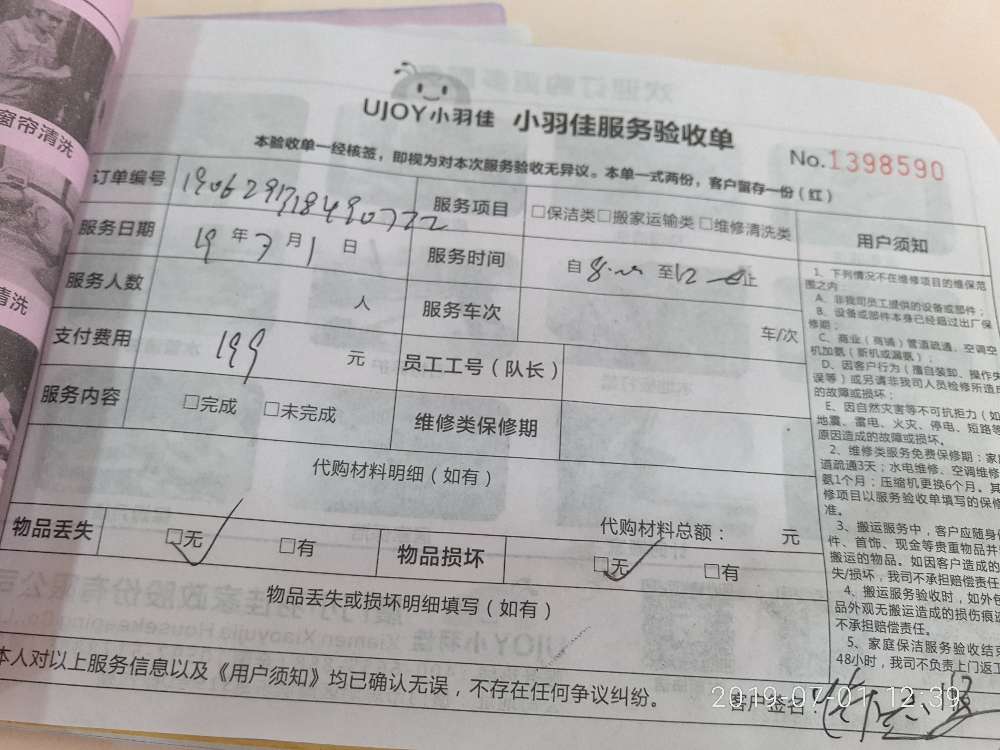 窗帘清洗
清洗
UJOY小羽佳 小羽佳服务验收单
No.1398590
本验收单一经核签，即视为对本次服务验收无异议。本单一式两份，客户留存一份（红）
订单编号
服务项目 □保洁类□搬家运输类□维修清洗类
服务日期 19年7月1日
服务时间 自 至12 止
服务人数 人
服务车次 车/次
支付费用 199 元
员工工号（队长）
服务内容 □完成 □未完成
维修类保修期
代购材料明细（如有）
代购材料总额： 元
物品丢失 □无 □有
物品损坏 □无 □有
物品丢失或损坏明细填写（如有）
本人对以上服务信息以及《用户须知》均已确认无误，不存在任何争议纠纷。
客户签名：
用户须知
1、下列情况不在维修项目的维保范
围之内：
A、非我司员工提供的设备或部件；
B、设备或部件本身已经超过出厂保
修期；
C、商业（商铺）管道疏通、空调空
机加氨（新机或漏氨）；
D、因客户行为（擅自装卸、操作失
误等）或另请非我司人员检修所造成
的故障或损坏；
E、因自然灾害等不可抗拒力（如
地震、雷电、火灾、停电、短路等
原因造成的故障或损坏。
2、维修类服务免费保修期：家庭
道疏通3天；水电维修、空调维修
氨1个月；压缩机更换6个月。其
修项目以服务验收单填写的保修
准。
3、搬运服务中，客户应随身
件、首饰、现金等贵重物品并
搬运的物品。如因客户造成的
失/损坏，我司不承担赔偿责任
4、搬运服务验收时，如外包
品外观无搬运造成的损伤痕迹
不承担赔偿责任。
5、家庭保洁服务验收结束
48小时，我司不负责上门返工
2019-07-01 12:39